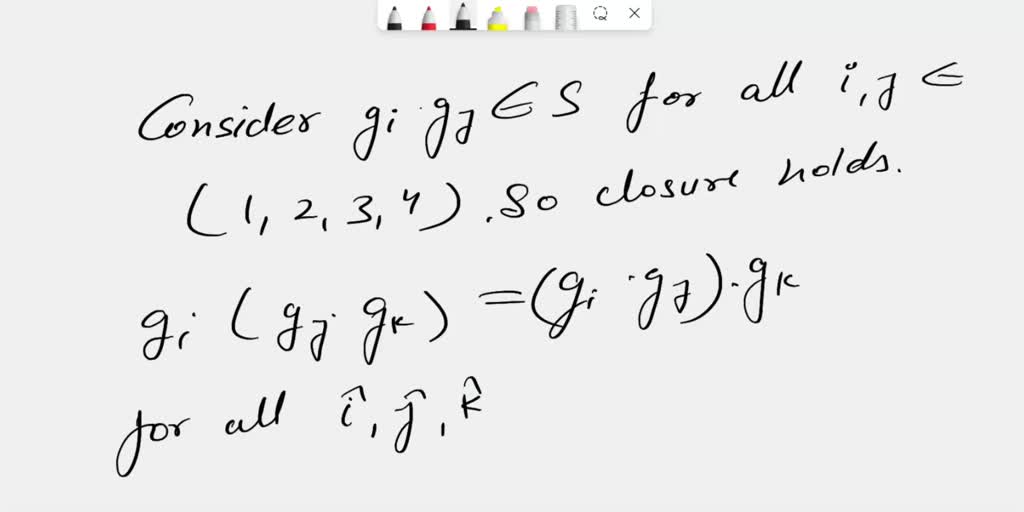 Consider gi · gj ∈ S for all i, j ∈
(1, 2, 3, 4). So closure holds.
gi (gj · gk) = (gi · gj) · gk
for all î, ĵ, k̂